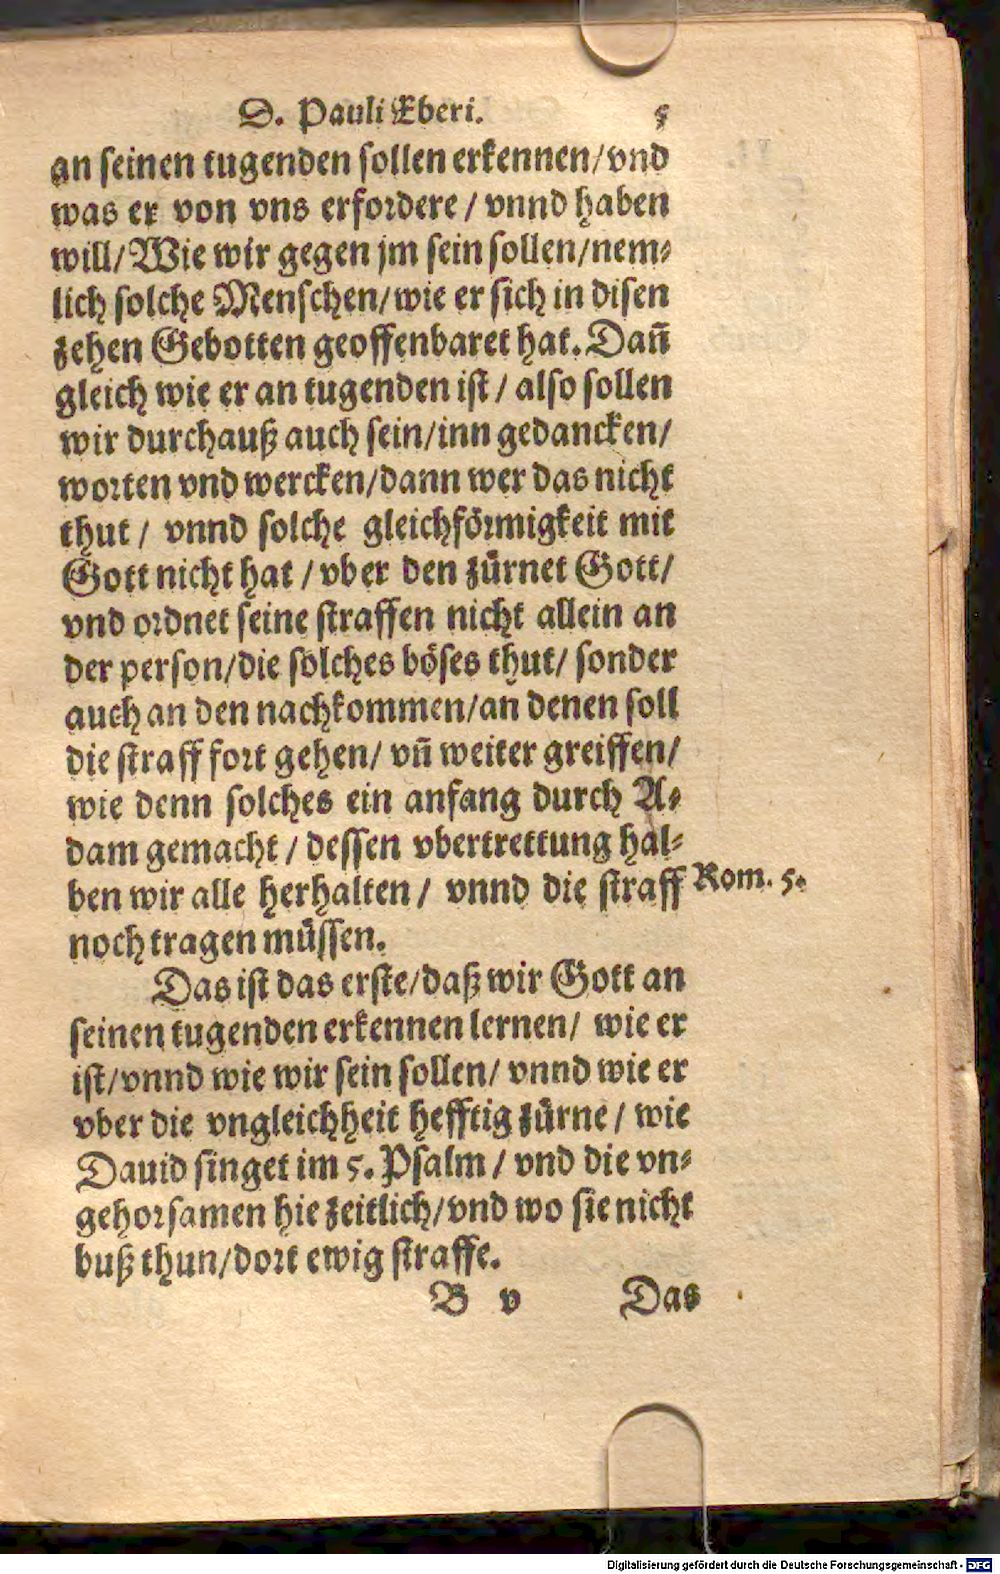 D. Pauli Eberi. 5
an seinen tugenden sollen erkennen/vnd
was er von vns erfordere / vnnd haben
will/Wie wir gegen jm sein sollen/nem⸗
lich solche Menschen/wie er sich in disen
zehen Gebotten geoffenbaret hat. Dañ
gleich wie er an tugenden ist / also sollen
wir durchauß auch sein/inn gedancken/
worten vnd wercken/dann wer das nicht
thut / vnnd solche gleichförmigkeit mit
Gott nicht hat / vber den zürnet Gott/
vnd ordnet seine straffen nicht allein an
der person/die solches böses thut/ sonder
auch an den nachkommen/an denen soll
die straff fort gehen/ vñ weiter greiffen/
wie denn solches ein anfang durch A⸗
dam gemacht / dessen vbertrettung hal⸗
ben wir alle herhalten / vnnd die straff Rom. 5.
noch tragen müssen.
Das ist das erste/daß wir Gott an
seinen tugenden erkennen lernen/ wie er
ist/vnnd wie wir sein sollen/ vnnd wie er
vber die vngleichheit hefftig zürne / wie
Dauid singet im 5. Psalm / vnd die vn⸗
gehorsamen hie zeitlich/vnd wo sie nicht
buß thun/dort ewig straffe.
B v Das
Digitalisierung gefördert durch die Deutsche Forschungsgemeinschaft - DFG